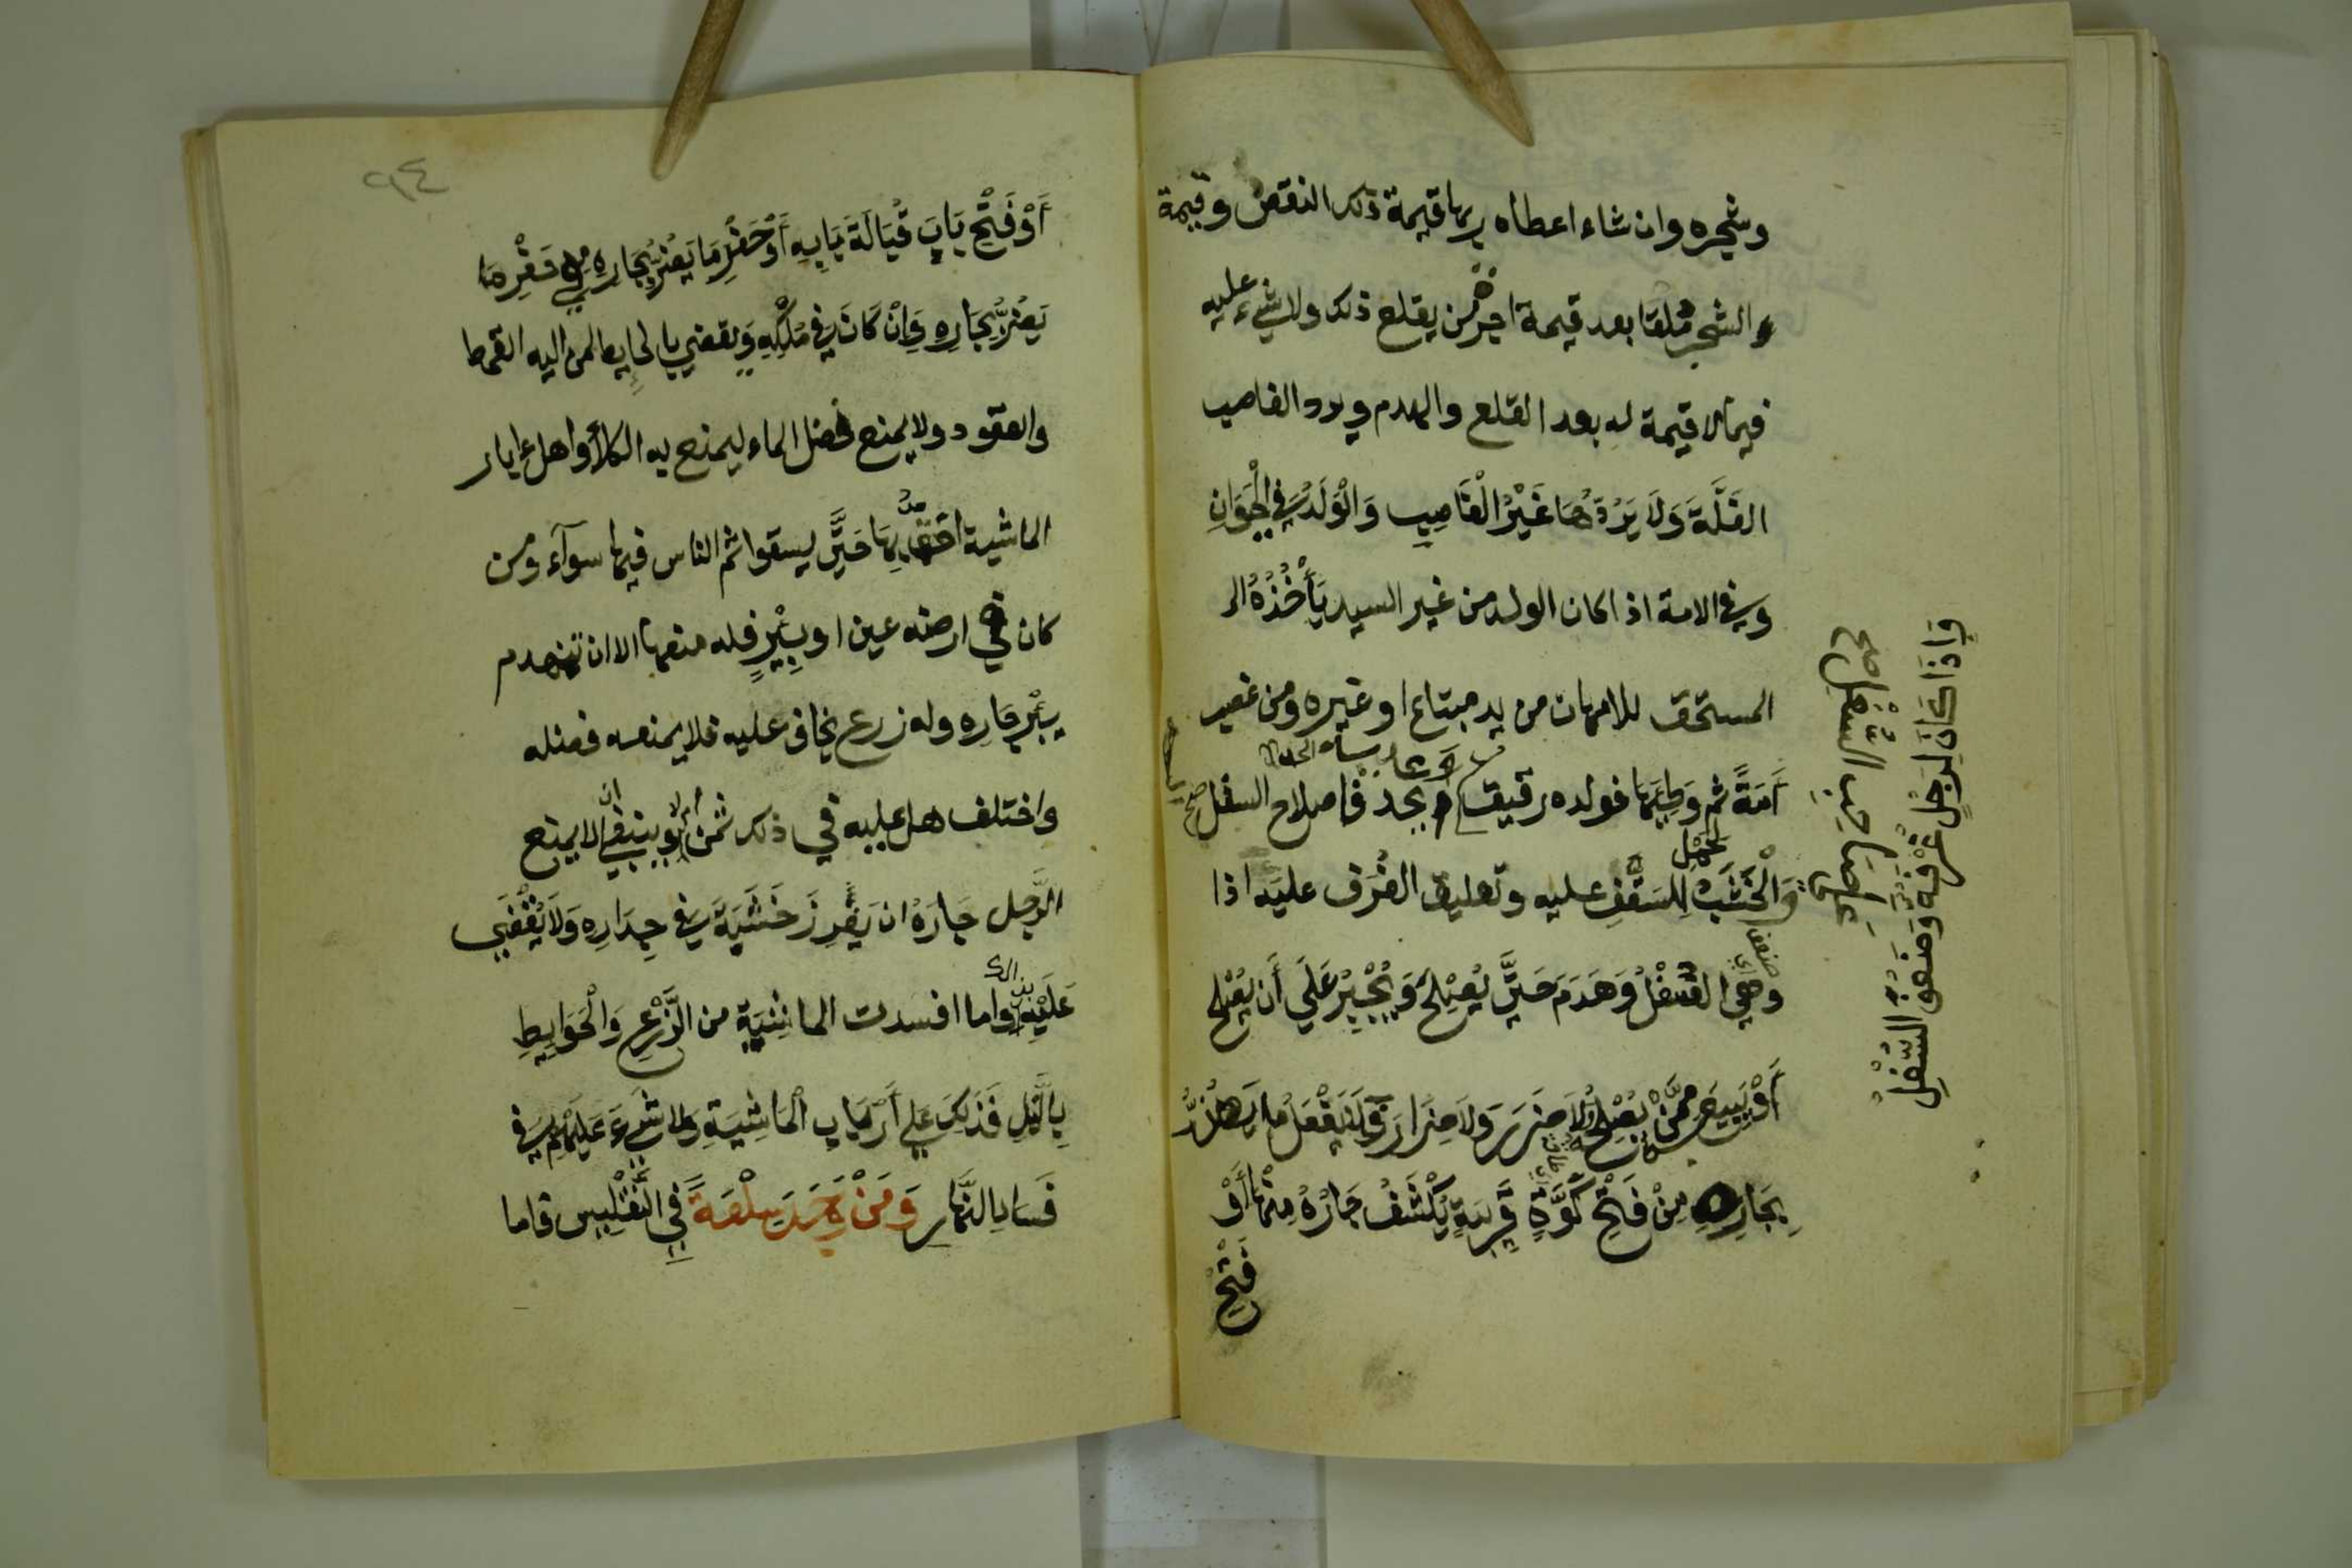 وشجره وان شاء اعطاه ربها قيمة ذلك النقض وقيمة
والشجر ملقا بعد قيمة اجر من يقلع ذلك ولا شيء عليه
فيما لا قيمة له بعد القلع والهدم ويرد الغاصب
الغَلَّةَ وَلَا يَرُدُّهَا غَيْرُ الْغَاصِبِ وَالْوَلَدُ فِي الْحَيَوَانِ
وفي الامة اذا كان الولد من غير السيد يَأْخُذُهُ
المستحق للامهات من يد مبتاع او غيره ومن غصب
أَمَةً ثم وَطِئَهَا فولده رقيق وَعليه الحد فاصلاح السفل
وَالْخَشَبُ لِلسَّقْفِ عليه وتعليق الغُرَف عليه اذا
وهي السُّفْلُ وَهَدَمَ حَتَّى يُصْلِحَ وَيُجْبَرُ عَلَى أَن يُصْلِحَ
أَوْ يَبِيعَ مِمَّنْ يُصْلِحُ وَلاَ ضَرَرَ وَلاَ ضِرَارَ فَلَا يَفْعَلْ مَا يَضُرُّ
بِجَارِهِ مِنْ فَتْحِ كُوَّةٍ قَرِيبَةٍ يَكْشِفُ جَارُهُ مِنْهَا أَوْ
فَتْحِ
وَاِذَا كَانَ لِرَجُلٍ غُرْفَة وَضَعُفَ السُّفْلُ
صاحب السفل صح
٩٤
أَوْ فَتْحِ بَابٍ قُبَالَةَ بَابِهِ أَوْ حَفْرِ مَا يَضُرُّ بِجَارِهِ فِي حَفْرِ مَا
يَضُرُّ بِجَارِهِ وَإِنْ كَانَ فِي مُلْكِهِ وَيقضي بالحايط لمن اليه القمط
والعقود ولا يمنع فضل الماء ليمنع به الكلأ واهل ءابار
الماشية احقُّ بِهَا حَتَّى يسقوا ثم الناس فيها سوآء ومن
كان في ارضه عين او بِيْرٍ فله منعها الا ان تنهدم
بيْر جَارِهِ وله زرع يخاف عليه فلا يمنعه فضله
واختلف هل عليه في ذلك ثمن أم لا وينبغي ان لا يمنع
الرَّجل جَارَهُ ان يَغْرِزَ خَشَبَةً فِي جِدَارِهِ وَلاَ يُقْضَى
عَلَيْهِ بذلك واما افسدت الماشِيَة من الزَّرْعِ وَالْحَوَايِطِ
بِالَّيْلِ فَذَلِكَ عَلَى أَرْبَابِ الْمَاشِيَةِ وَلا شَيْءَ عَلَيْهِمْ فِي
فَسَاد النَّهَارِ وَمَنْ وَجَدَ سِلْعَةً فِي التَّفْلِيسِ فاما